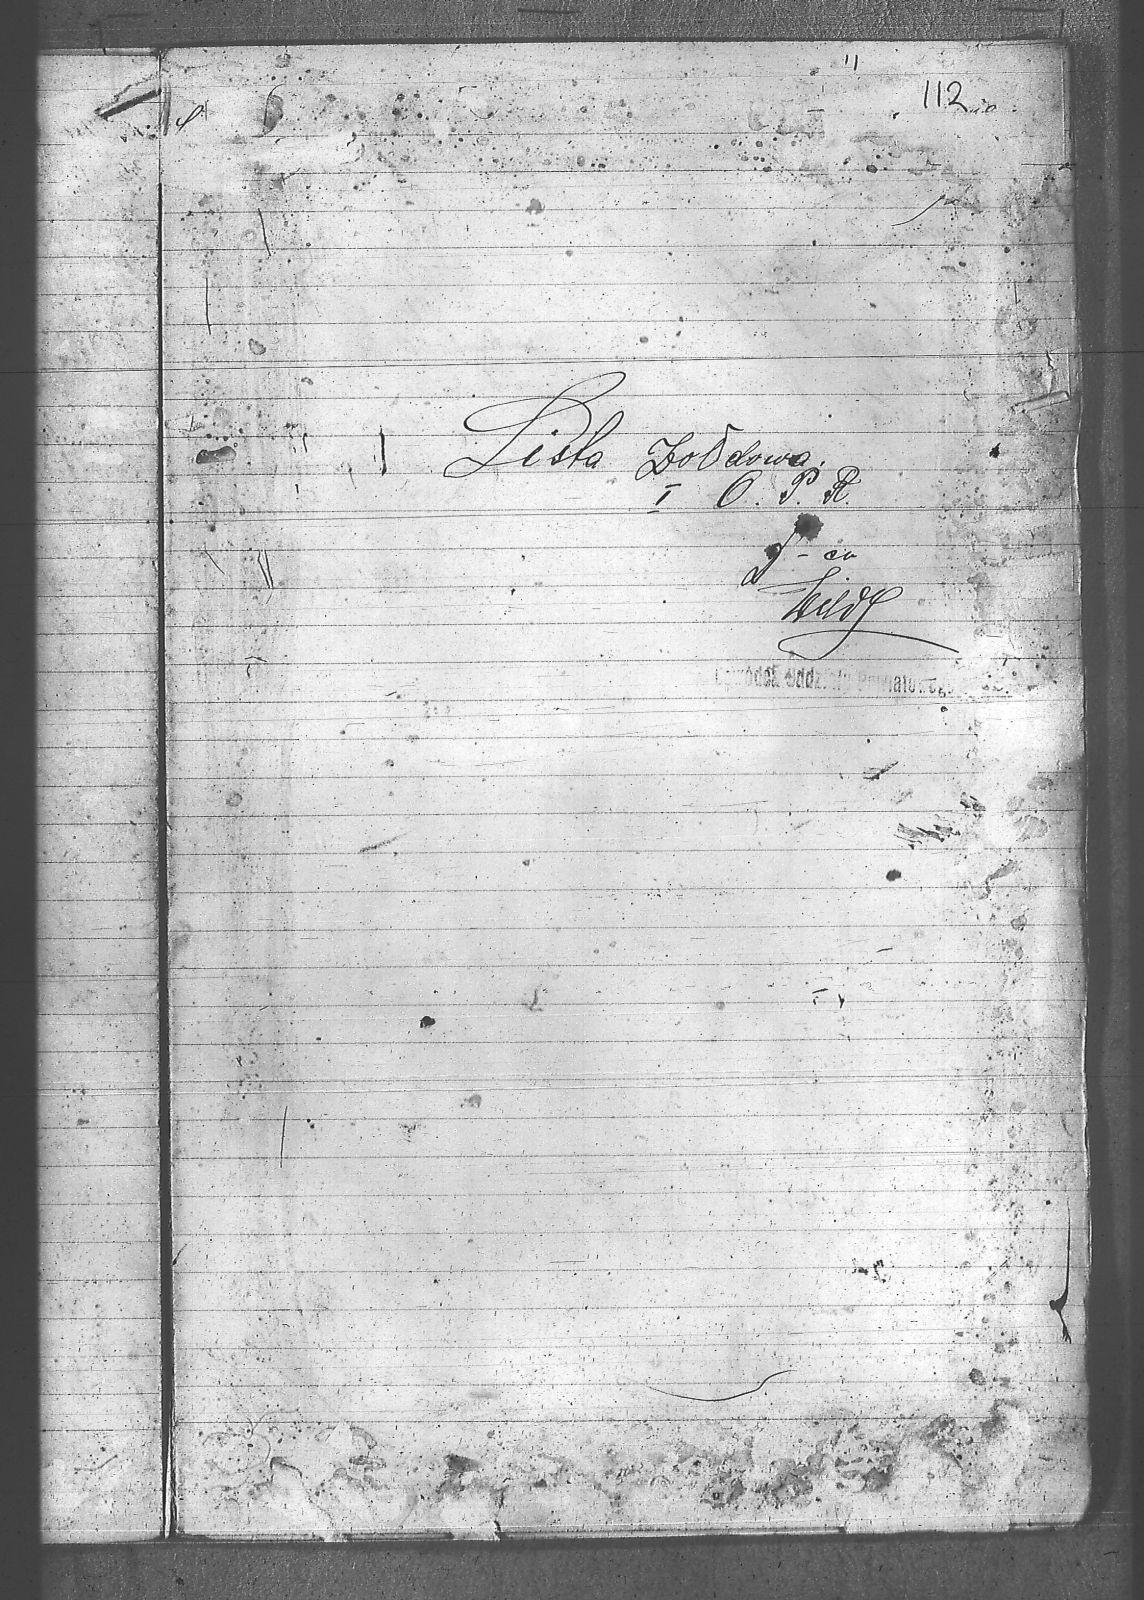 112
Lista Żołdowa.
I O. P. R.
D-ca
Oddziału